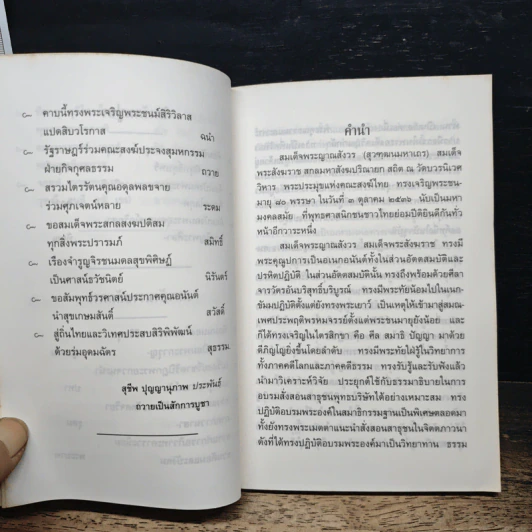 คาบนี้ทรงพระเจริญพระชนม์สิริวิลาส
แปดสิบวโรกาส ฉนำ
รัฐราษฎร์ร่วมคณะสงฆ์ประจงสุมหกรรม
ฝ่ายกิจกุศลธรรม ถวาย
สรวมไตรรัตนคุณอดุลพลขจาย
ร่วมศุภเจตน์หลาย ระดม
ขอสมเด็จพระสกลสงฆปติสม
ทุกสิ่งพระปรารมภ์ สมิทธิ์
เรืองจำรูญจิรชนมดลสุขพิศิษฏ์
เป็นศาสน์ธวัชนิตย์ นิรันตร์
ขอสัมพุทธ์วรศาสน์ประกาศคุณอนันต์
นำสุขเกษมสันติ์ สวัสดิ์
สู่ถิ่นไทยและวิเทศประสบสิริพิพัฒน์
ด้วยร่มอุดมฉัตร สุธรรม
สุชีพ ปุญญานุภาพ ประพันธ์
ถวายเป็นสักการบูชา
คำนำ
สมเด็จพระญาณสังวร (สุวฑฺฒนมหาเถร) สมเด็จ
พระสังฆราช สกลมหาสังฆปริณายก สถิต ณ วัดบวรนิเวศ
วิหาร พระประมุขแห่งคณะสงฆ์ไทย ทรงเจริญพระชน-
มายุ ๘๐ พรรษา ในวันที่ ๓ ตุลาคม ๒๕๓๖ นับเป็นมหา
มงคลสมัย ที่พุทธศาสนิกชนชาวไทยย่อมปีติยินดีกันทั่ว
หน้าอีกวาระหนึ่ง
สมเด็จพระญาณสังวร สมเด็จพระสังฆราช ทรงมี
พระคุณูปการเป็นอเนกอนันต์ทั้งในส่วนอัตตสมบัติและ
ปรหิตปฏิบัติ ในส่วนอัตตสมบัตินั้น ทรงถึงพร้อมด้วยศีลา
จารวัตรอันบริสุทธิ์บริบูรณ์ ทรงมีพระทัยน้อมไปในเนก-
ขัมมปฏิบัติตั้งแต่ยังทรงพระเยาว์ เป็นเหตุให้เข้ามาสู่สมณ-
เพศประพฤติพรหมจรรย์ตั้งแต่พระชนมายุยังน้อย และ
ก็ได้ทรงเจริญในไตรสิกขา คือ ศีล สมาธิ ปัญญา มาด้วย
ดีภิญโญยิ่งขึ้นโดยลำดับ ทรงมีพระทัยใฝ่รู้ในวิทยาการ
ทั้งภาคคดีโลกและภาคคดีธรรม ทรงรับรู้และรับฟังแล้ว
นำมาวิเคราะห์วิจัย ประยุกต์ใช้กับธรรมาธิบายในการ
อบรมสั่งสอนสาธุชนพุทธบริษัทได้อย่างเหมาะสม ทรง
ปฏิบัติอบรมพระองค์ในสมาธิกรรมฐานเป็นพิเศษตลอดมา
ทั้งยังทรงพระเมตตาแนะนำสั่งสอนสาธุชนในจิตตภาวนา
ดังที่ได้ทรงปฏิบัติอบรมพระองค์มาเป็นวิทยาทาน ธรรม